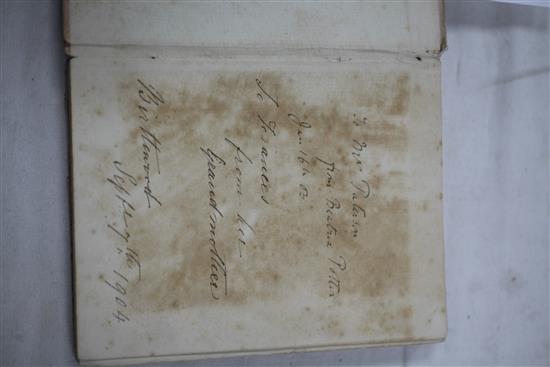 To Mrs Paterson
from Beatrix Potter
Jan 16th
To Frances
from her
Grandmother
Sept 7th 1904